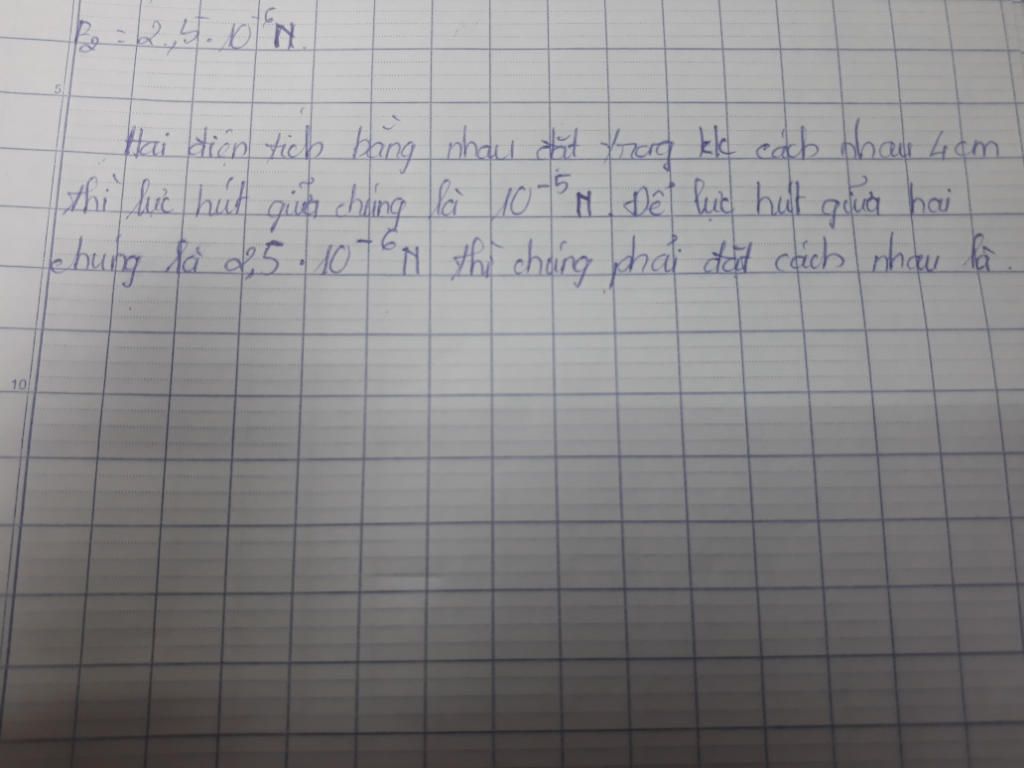 F₂ = 2,5 . 10⁻⁶ N.
5
Hai điện tích bằng nhau đặt trong kk cách nhau 4 cm
thì lực hút giữa chúng là 10⁻⁵ N. Để lực hút giữa hai
chúng là 2,5 . 10⁻⁶ N thì chúng phải đặt cách nhau là.
10